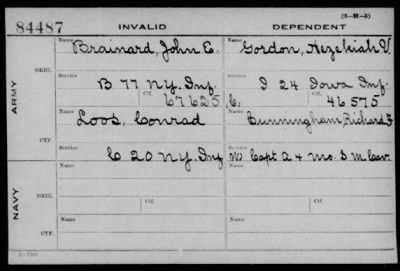 (3-H-3)
84487 INVALID DEPENDENT
Name Name
Brainard, John E. Gordon, Hezekiah V.
ORIG.
Service Service
B 77 N.Y. Inf I 24 Iowa Inf.
Ctf. 67625 Ctf. 46575
ARMY
Name Name
Loos, Conrad Cunningham, Richard F
CTF.
Service
C 20 N.Y. Inf Capt Q 4 Mo. S. M. Cav.
Name Name
ORIG.
Service Ctf. Service Ctf.
NAVY
Name Name
CTF.
Service Service